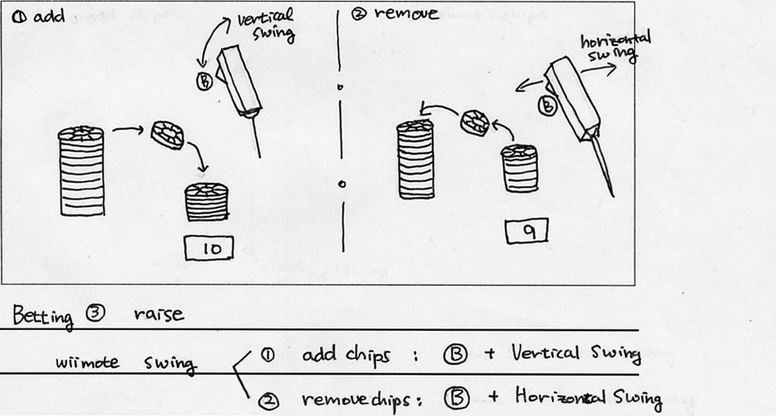 ① add
vertical
swing
Ⓑ
10
② remove
horizontal
swing
Ⓑ
9
Betting ③ raise
wiimote swing
① add chips : Ⓑ + Vertical Swing
② remove chips : Ⓑ + Horizontal Swing